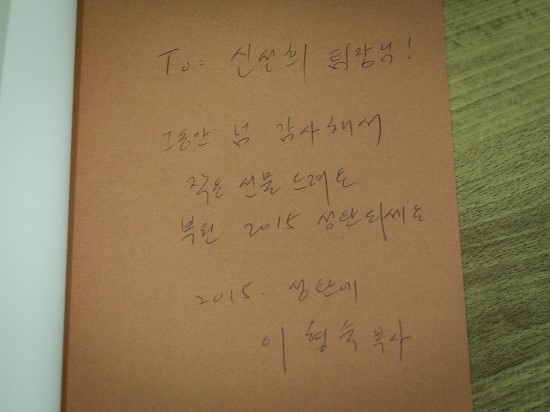 To: 신선희 팀장님!
그동안 넘 감사해서
작은 선물 드려요
복된 2015 성탄 되세요
2015. 성탄에
이형숙 목사